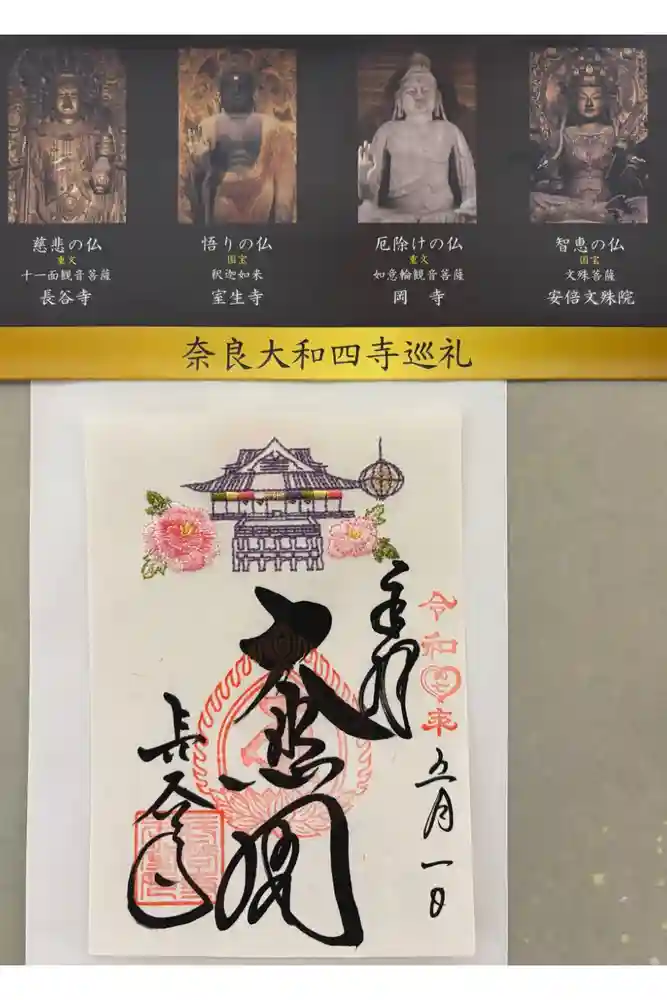 慈悲の仏
重文
十一面観音菩薩
長谷寺
悟りの仏
国宝
釈迦如来
室生寺
厄除けの仏
重文
如意輪観音菩薩
岡寺
智恵の仏
国宝
文殊菩薩
安倍文殊院
奈良大和四寺巡礼
奉拝
令和七年
五月一日
大悲閣
長谷寺